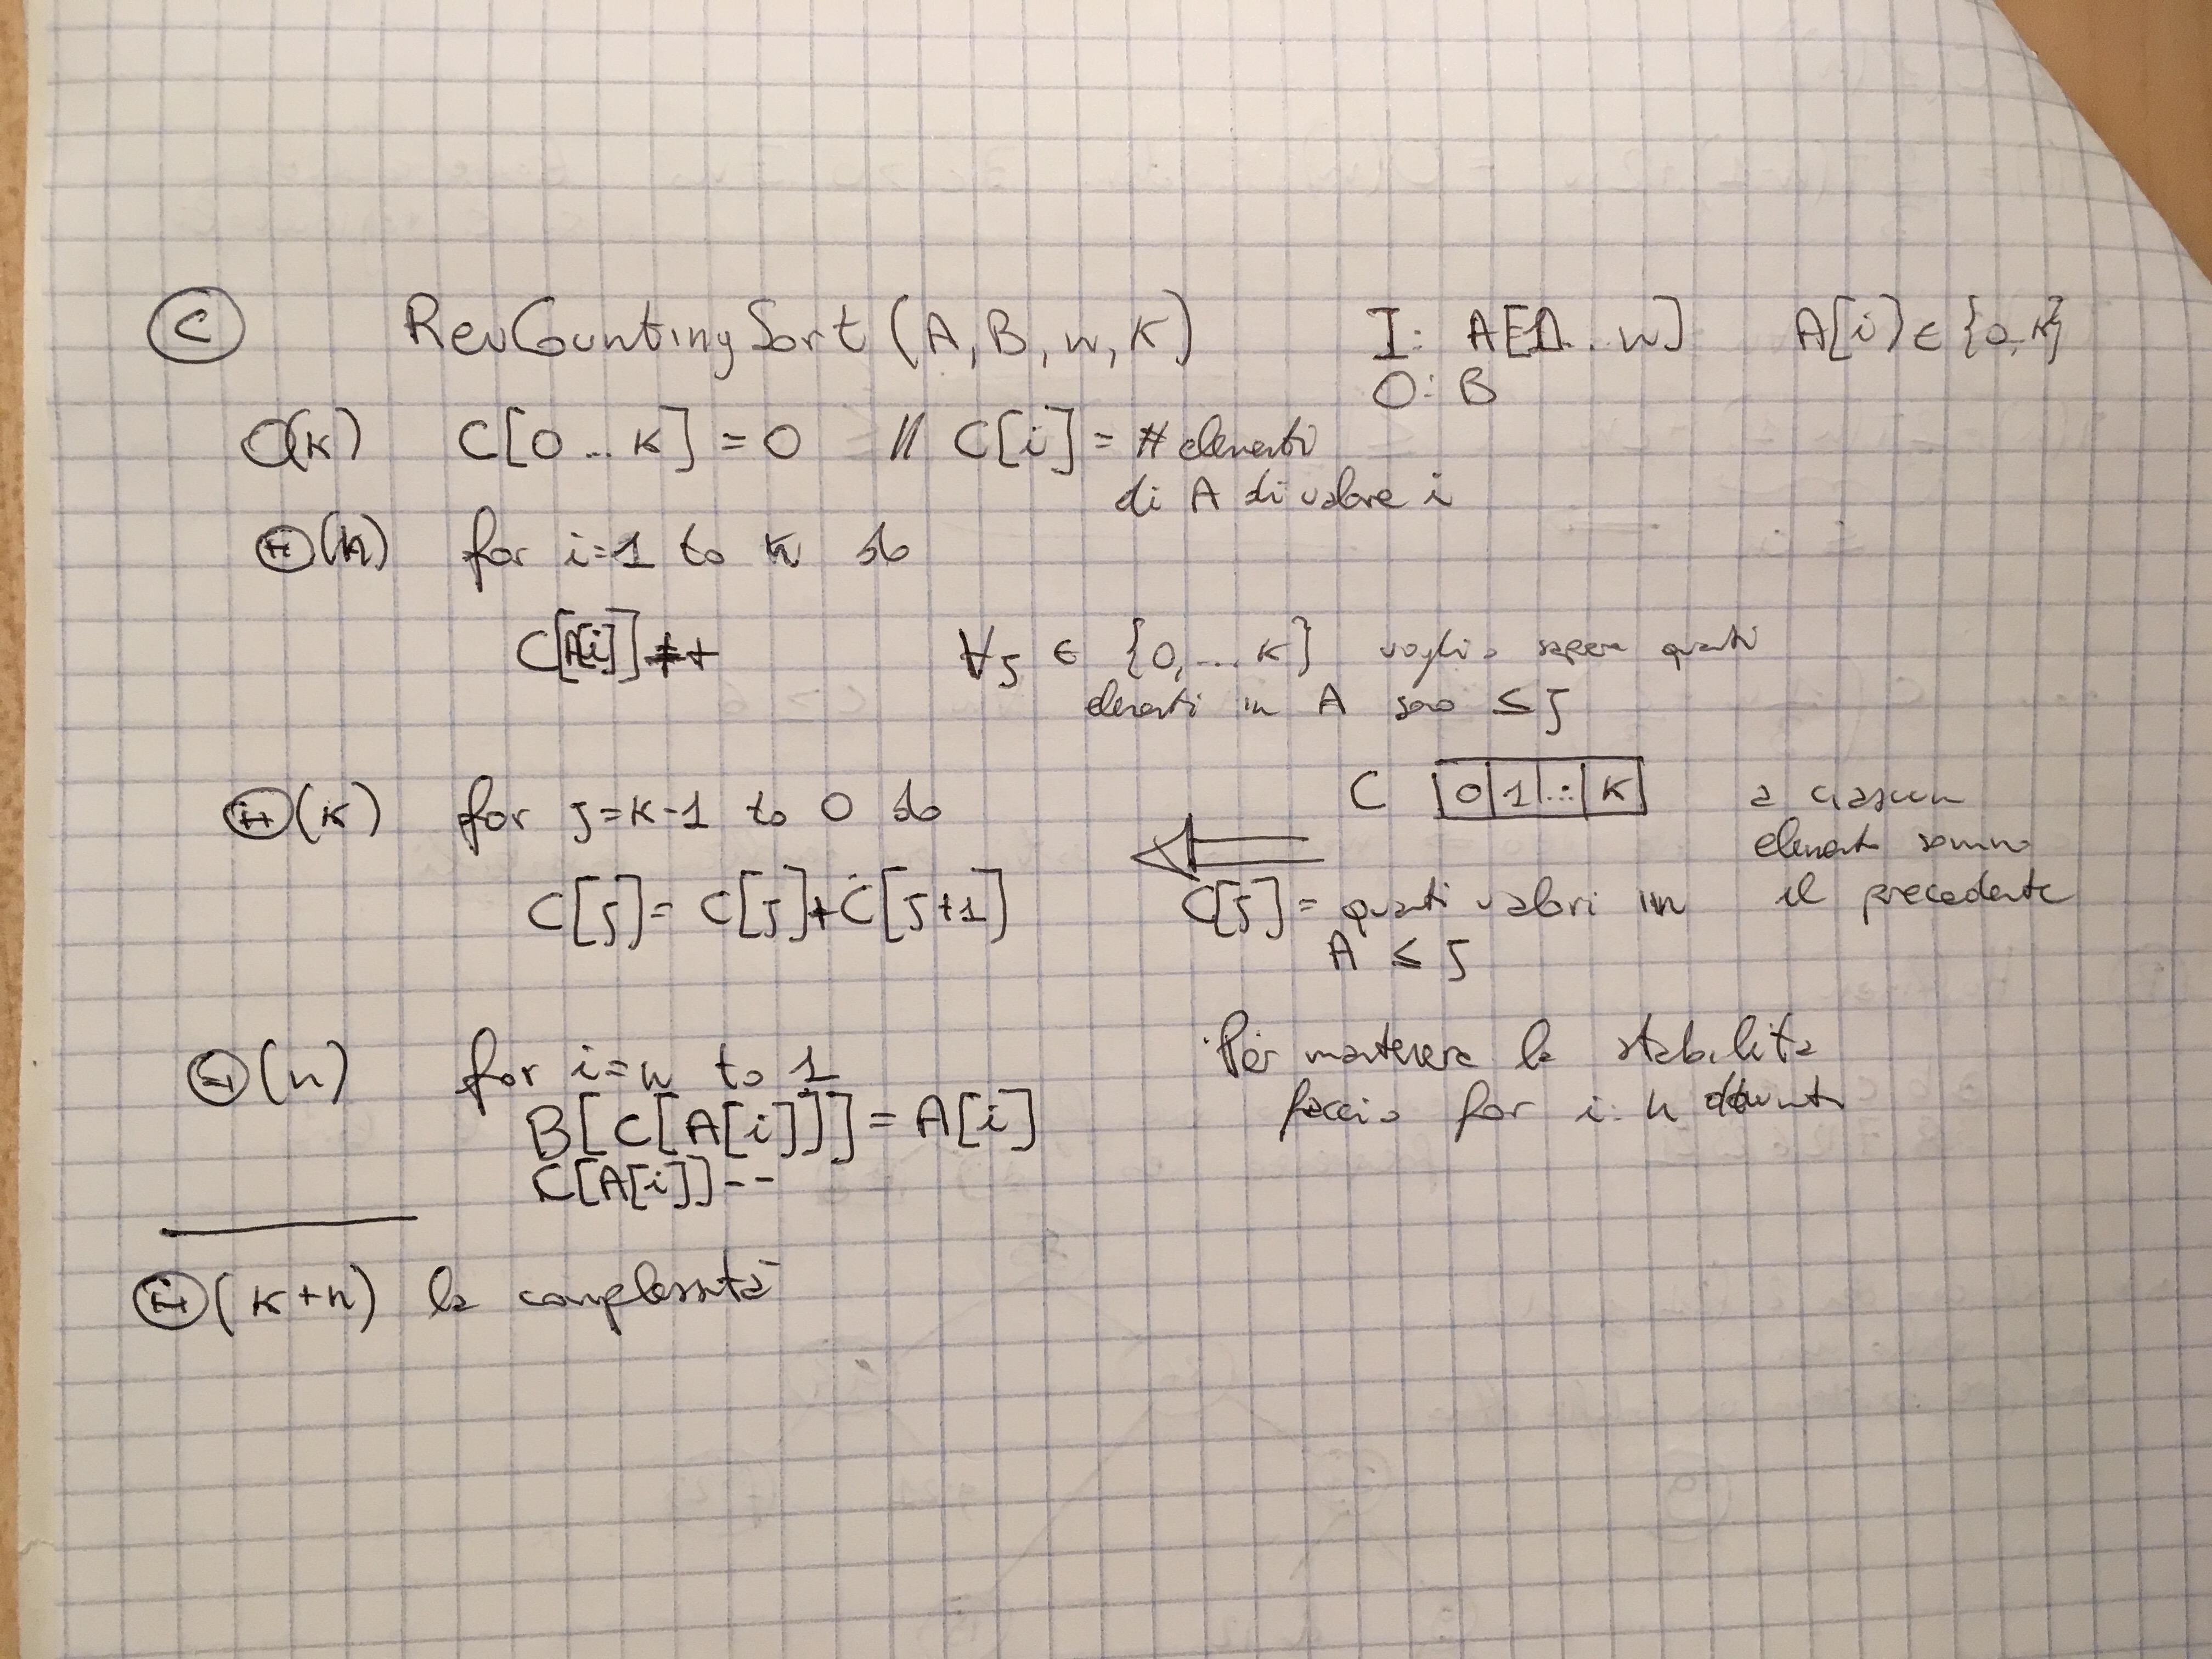 C RevCountingSort(A,B,n,K) I: A[1..n] A[i]∈{0..K}
O: B
O(K) C[0...K]=0 // C[i]=# elementi
di A di valore i
Θ(n) for i=1 to n do
C[A[i]]++ ∀j ∈ {0,...K} voglio sapere quanti
elementi in A sono ≤ j
Θ(K) for j=K-1 to 0 do C 0 1 ... K a ciascun
elemento sommo
C[j]=C[j]+C[j+1] C[j]= quanti valori in il precedente
A ≤ j
Θ(n) for i=n to 1 Per mantenere la stabilità
B[C[A[i]]]=A[i] faccio for i: n
C[A[i]]--
Θ(K+n) la complessità